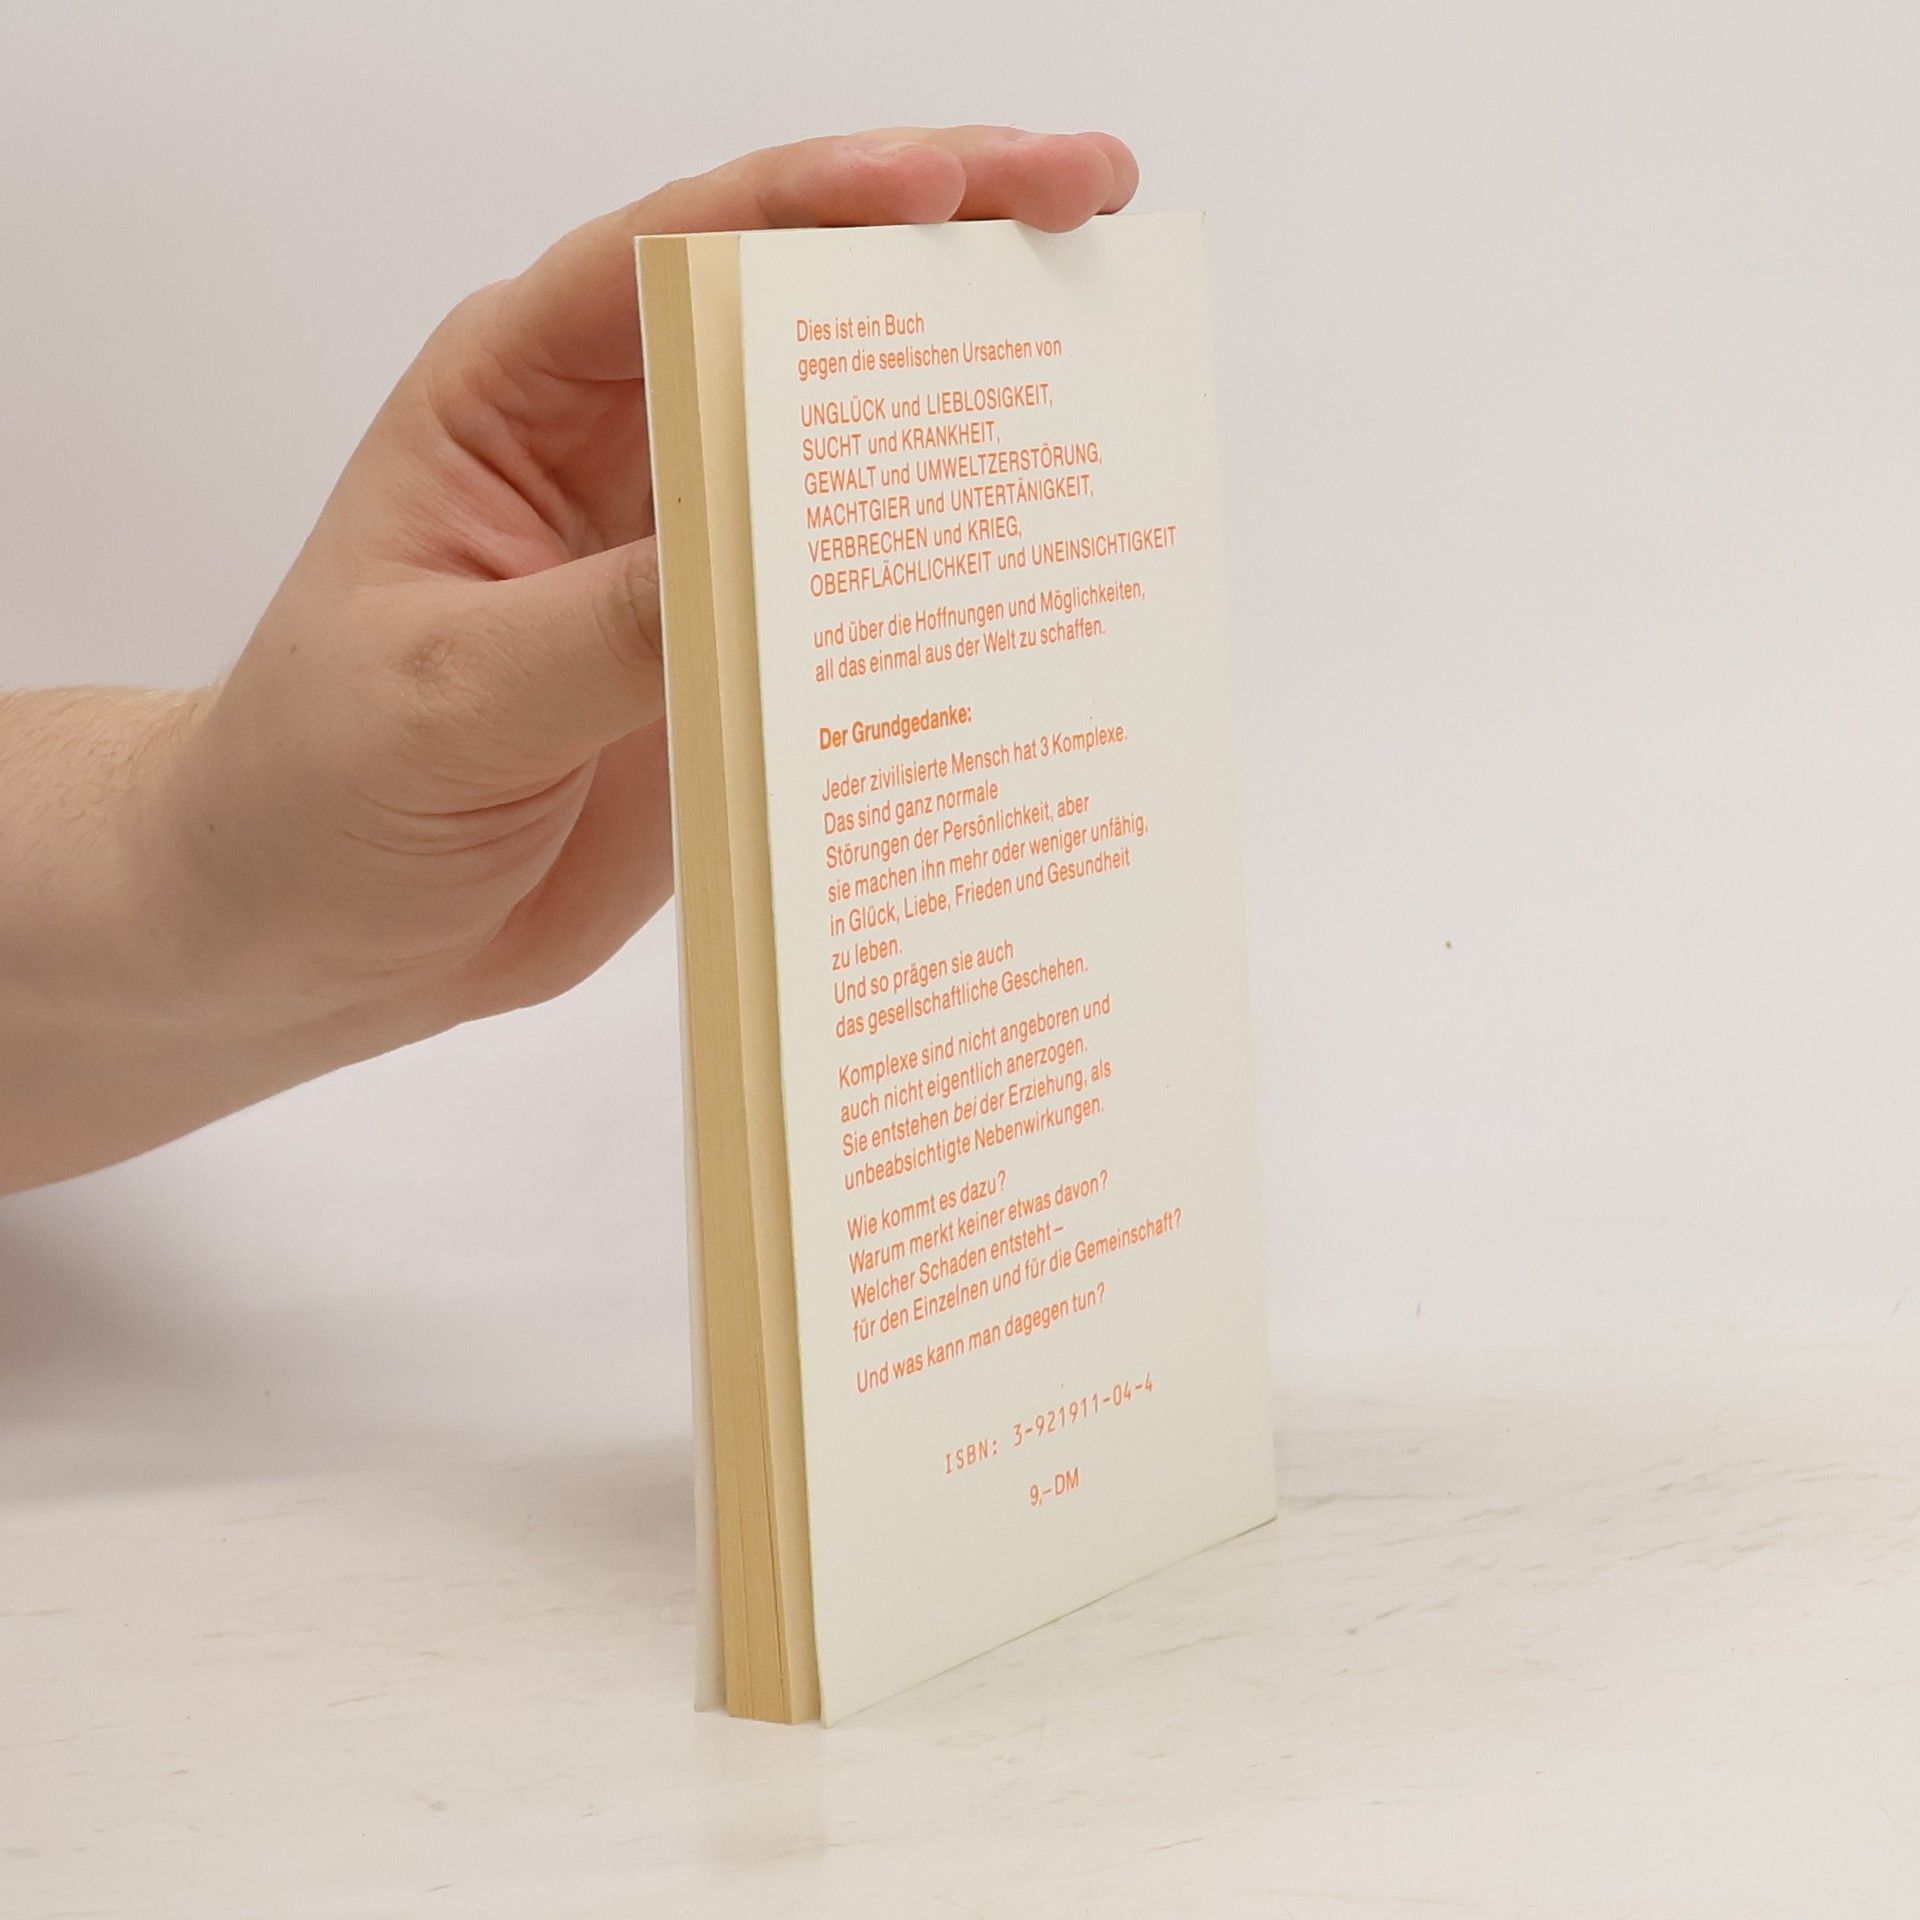 Dies ist ein Buch
gegen die seelischen Ursachen von
UNGLÜCK und LIEBLOSIGKEIT,
SUCHT und KRANKHEIT,
GEWALT und UMWELTZERSTÖRUNG,
MACHTGIER und UNTERTÄNIGKEIT,
VERBRECHEN und KRIEG,
OBERFLÄCHLICHKEIT und UNEINSICHTIGKEIT
und über die Hoffnungen und Möglichkeiten,
all das einmal aus der Welt zu schaffen.
Der Grundgedanke:
Jeder zivilisierte Mensch hat 3 Komplexe.
Das sind ganz normale
Störungen der Persönlichkeit, aber
sie machen ihn mehr oder weniger unfähig,
in Glück, Liebe, Frieden und Gesundheit
zu leben.
Und so prägen sie auch
das gesellschaftliche Geschehen.
Komplexe sind nicht angeboren und
auch nicht eigentlich anerzogen.
Sie entstehen bei der Erziehung, als
unbeabsichtigte Nebenwirkungen.
Wie kommt es dazu?
Warum merkt keiner etwas davon?
Welcher Schaden entsteht –
für den Einzelnen und für die Gemeinschaft?
Und was kann man dagegen tun?
ISBN: 3-921911-04-4
9,– DM